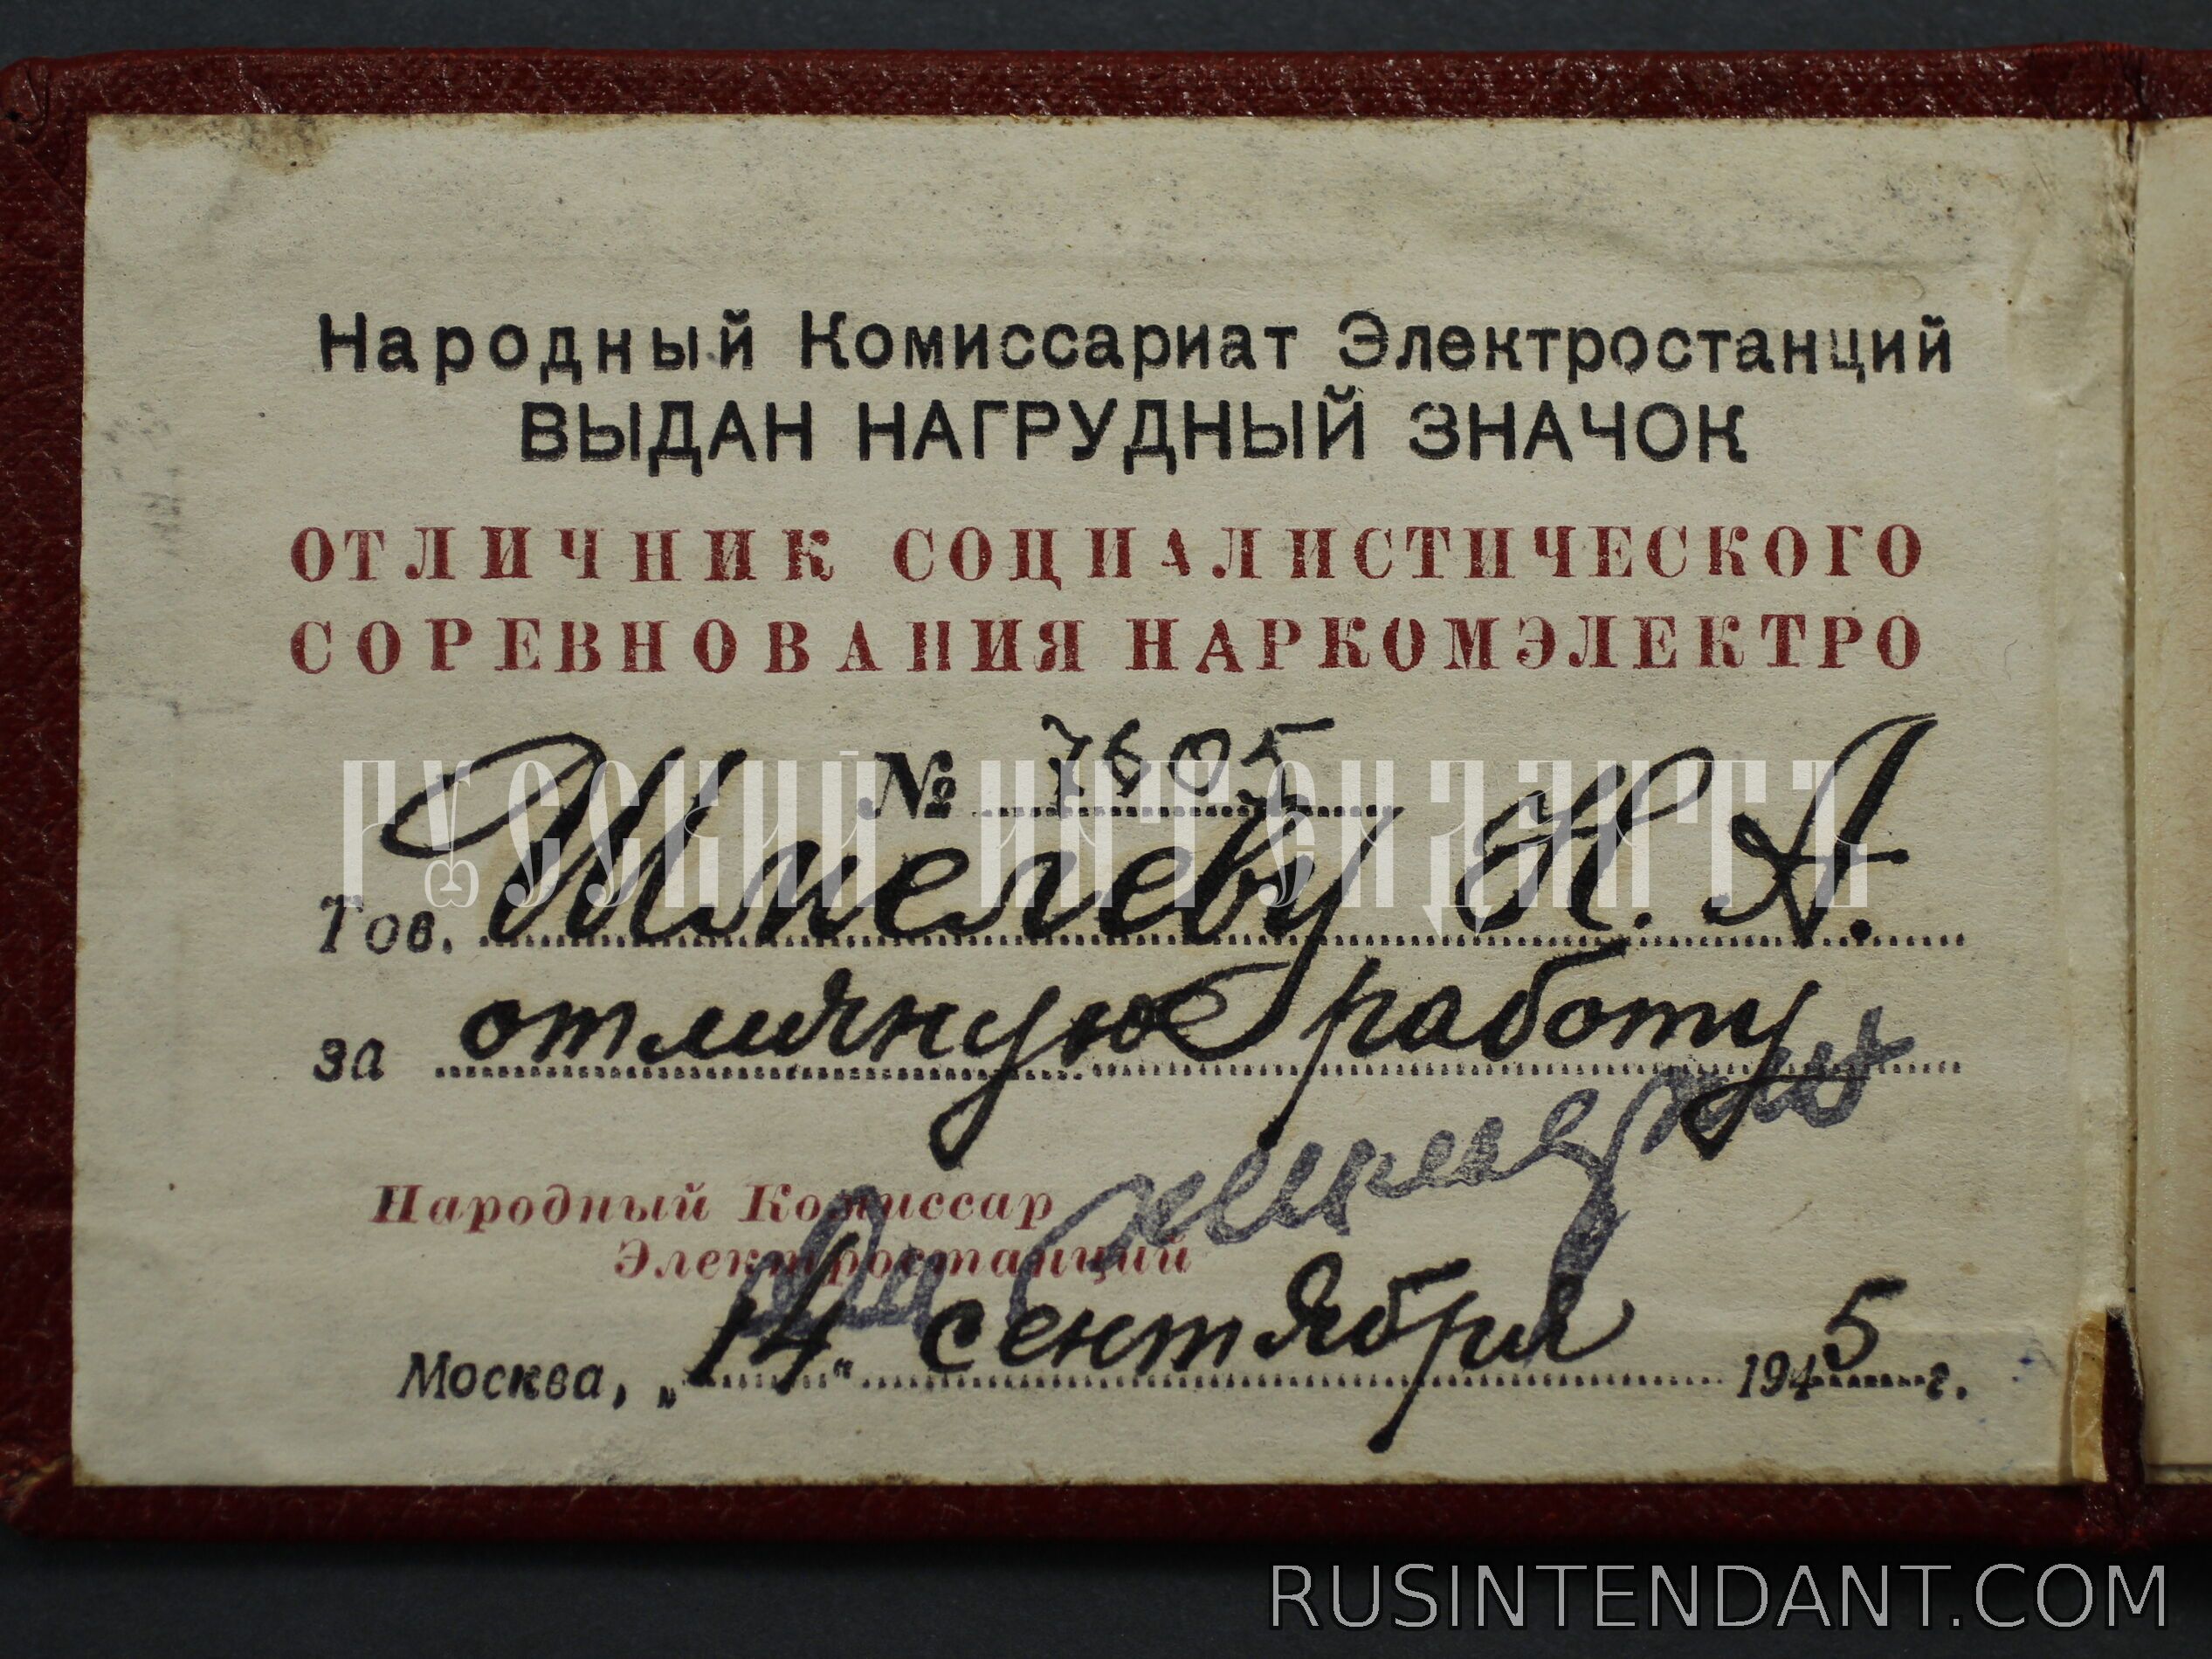 Народный Комиссариат Электростанций
ВЫДАН НАГРУДНЫЙ ЗНАЧОК
ОТЛИЧНИК СОЦИАЛИСТИЧЕСКОГО
СОРЕВНОВАНИЯ НАРКОМЭЛЕКТРО
№ 7605
РУССКИЙ ИНТЕНДАНТЪ
Тов. Шмелеву Н. А.
за отличную работу
Народный Комиссар
Электростанций
Москва, „14“ сентября 1945 г.
RUSINTENDANT.COM